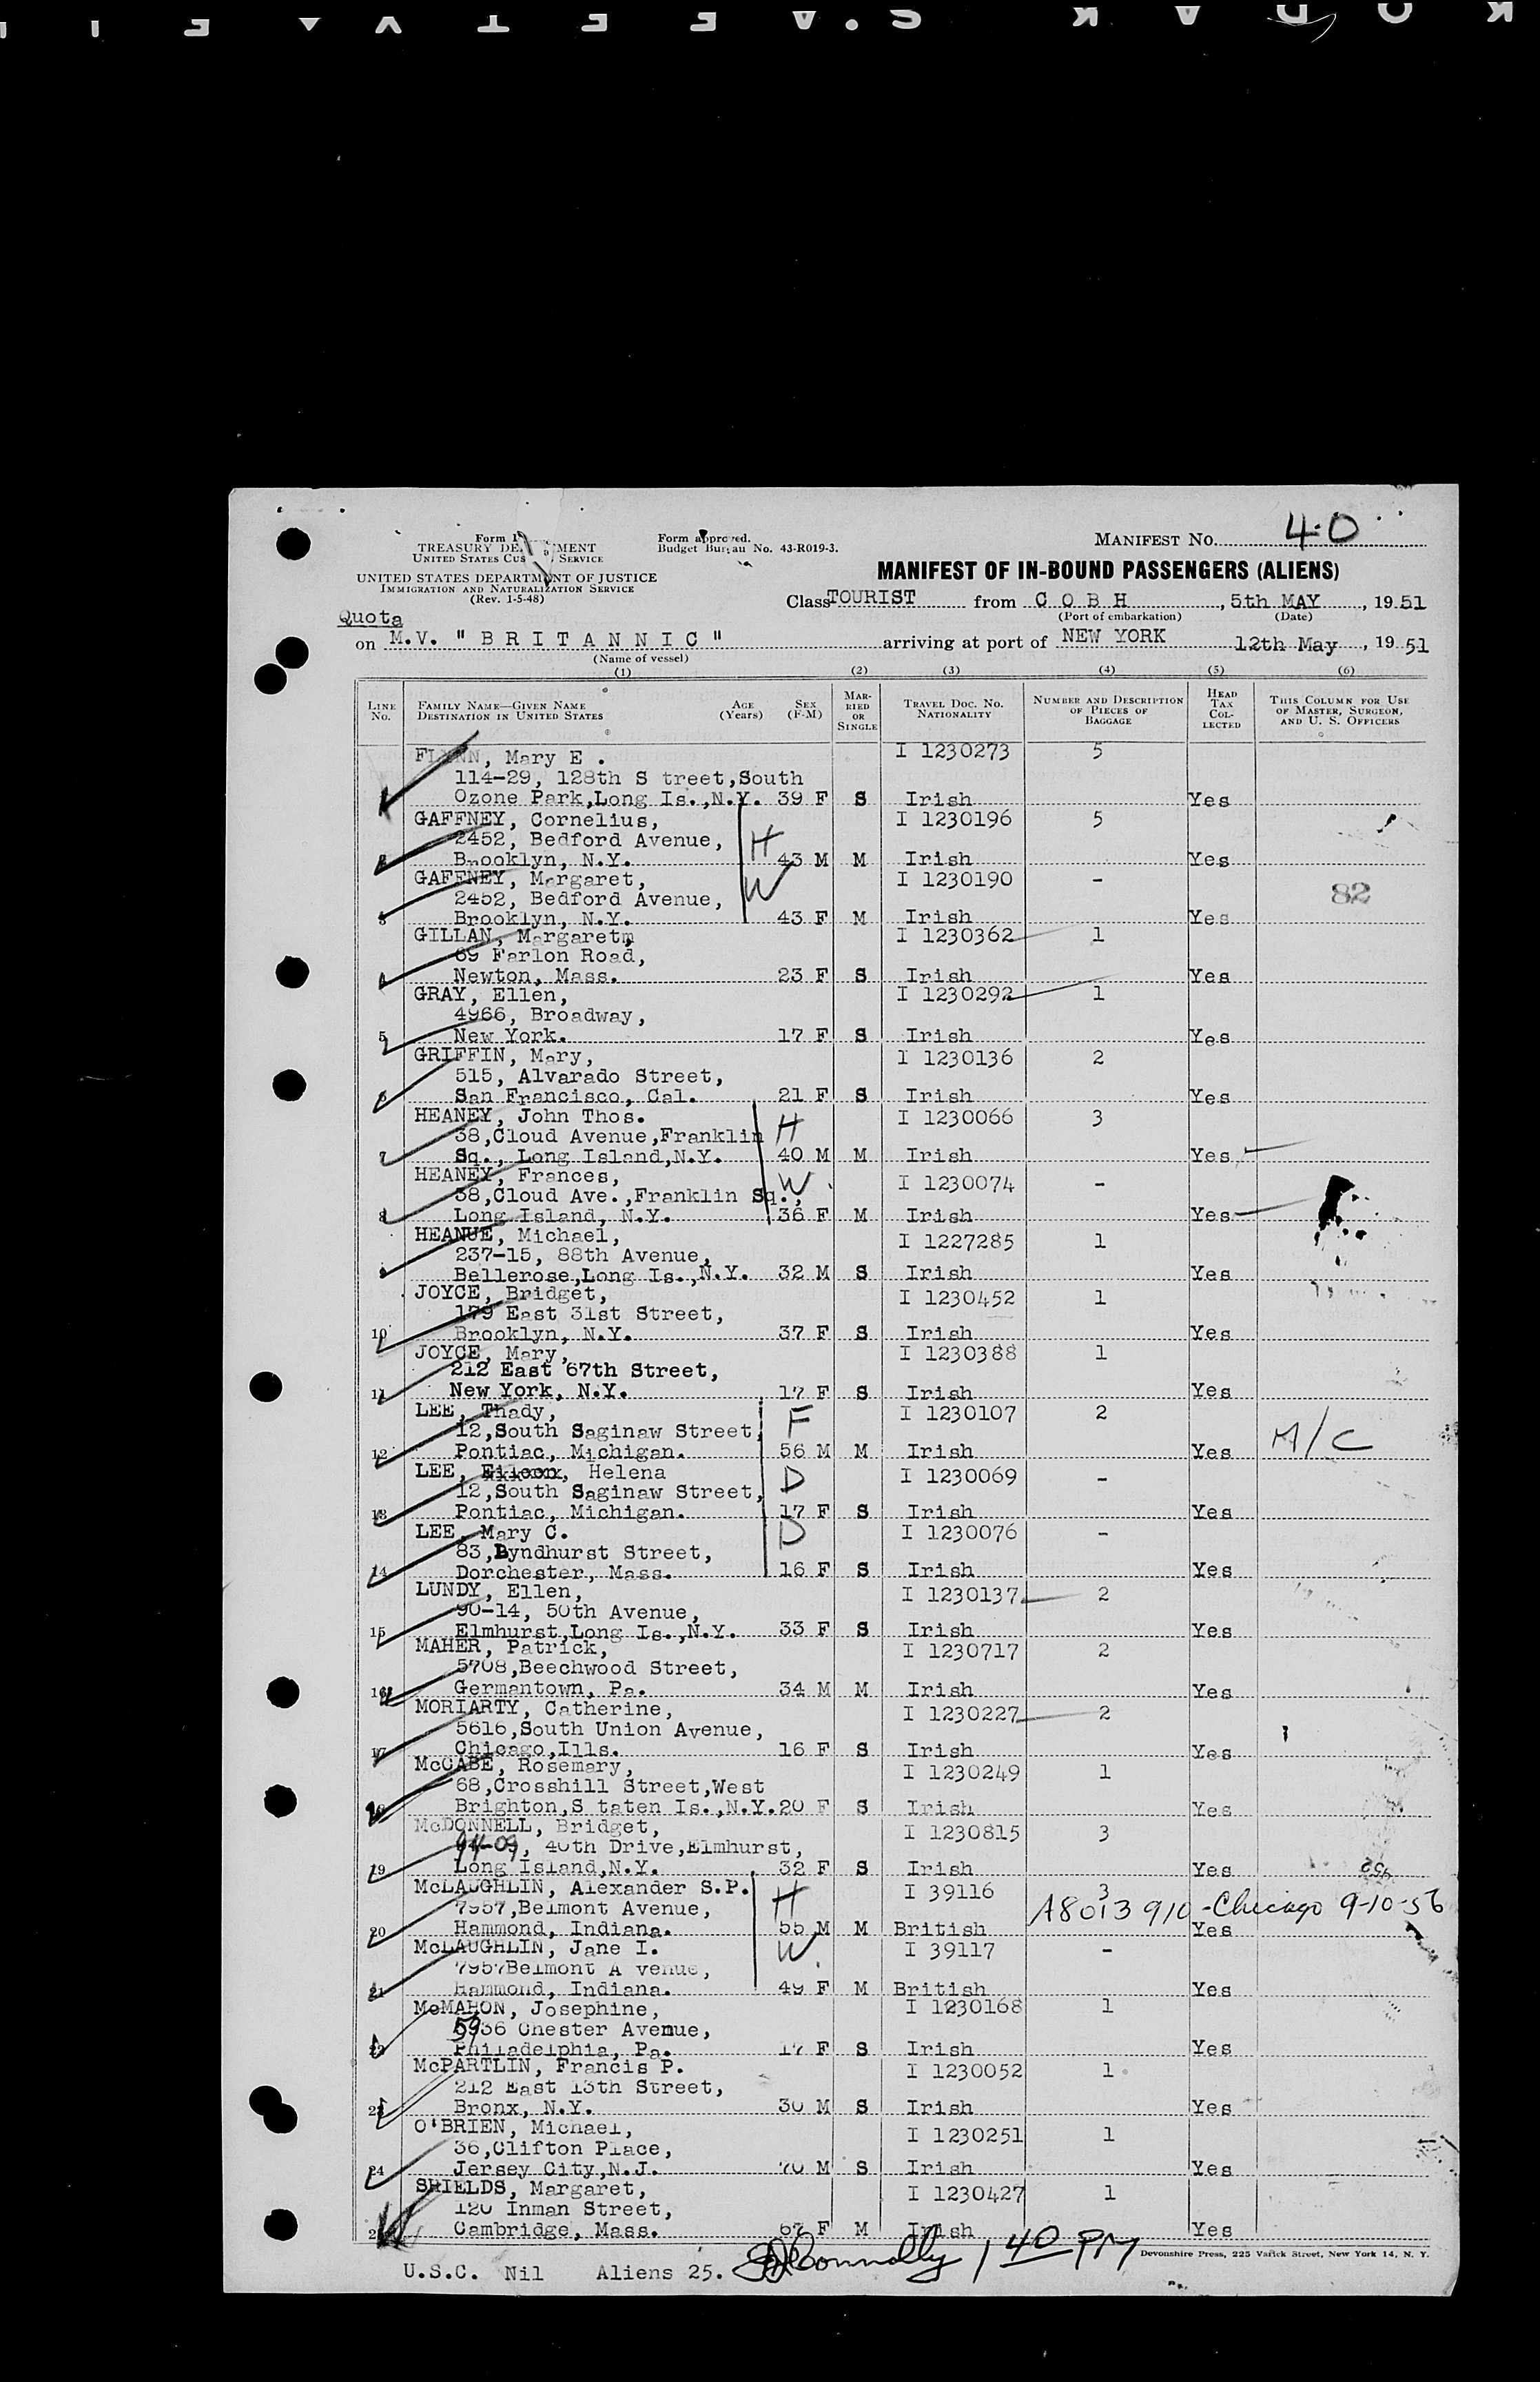 KODAK S.AFETY FI
Form I
TREASURY DEPARTMENT
UNITED STATES CUSTOMS SERVICE
Form approved.
Budget Bureau No. 43-R019-3.
MANIFEST NO. 40
UNITED STATES DEPARTMENT OF JUSTICE
IMMIGRATION AND NATURALIZATION SERVICE
(Rev. 1-5-48)
MANIFEST OF IN-BOUND PASSENGERS (ALIENS)
Class TOURIST from C O B H, 5th MAY, 19 51
(Port of embarkation) (Date)
Quota
on M.V. "B R I T A N N I C" arriving at port of NEW YORK 12th May, 19 51
(Name of vessel)
(1) (2) (3) (4) (5) (6)
LINE NO. FAMILY NAME—GIVEN NAME DESTINATION IN UNITED STATES AGE (Years) SEX (F-M) MARRIED OR SINGLE TRAVEL DOC. NO. NATIONALITY NUMBER AND DESCRIPTION OF PIECES OF BAGGAGE HEAD TAX COLLECTED THIS COLUMN FOR USE OF MASTER, SURGEON, AND U. S. OFFICERS
FLYNN, Mary E . I 1230273 5
114-29, 128th S treet,South
1 Ozone Park,Long Is.,N.Y. 39 F S Irish Yes
GAFFNEY, Cornelius, I 1230196 5
2452, Bedford Avenue, H
2 Brooklyn, N.Y. 43 M M Irish Yes
GAFFNEY, Margaret, W I 1230190 -
2452, Bedford Avenue, 82
3 Brooklyn, N.Y. 43 F M Irish Yes
GILLAN, Margaretm I 1230362 1
69 Farlon Road,
4 Newton, Mass. 23 F S Irish Yes
GRAY, Ellen, I 1230292 1
4966, Broadway,
5 New York. 17 F S Irish Yes
GRIFFIN, Mary, I 1230136 2
515, Alvarado Street,
6 San Francisco, Cal. 21 F S Irish Yes
HEANEY, John Thos. H I 1230066 3
38,Cloud Avenue,Franklin
7 Sq., Long Island,N.Y. 40 M M Irish Yes
HEANEY, Frances, W I 1230074 -
38,Cloud Ave.,Franklin Sq.,
8 Long Island, N.Y. 36 F M Irish Yes
HEANUE, Michael, I 1227285 1
237-15, 88th Avenue,
9 Bellerose,Long Is.,N.Y. 32 M S Irish Yes
JOYCE, Bridget, I 1230452 1
179 East 31st Street,
10 Brooklyn, N.Y. 37 F S Irish Yes
JOYCE, Mary, I 1230388 1
212 East 67th Street,
11 New York, N.Y. 17 F S Irish Yes
LEE, Thady, F I 1230107 2
12,South Saginaw Street, M/C
12 Pontiac, Michigan. 56 M M Irish Yes
LEE, Helena D I 1230069 -
12,South Saginaw Street,
13 Pontiac, Michigan. 17 F S Irish Yes
LEE, Mary C. D I 1230076 -
83,Lyndhurst Street,
14 Dorchester, Mass. 16 F S Irish Yes
LUNDY, Ellen, I 1230137 2
90-14, 50th Avenue,
15 Elmhurst,Long Is.,N.Y. 33 F S Irish Yes
MAHER, Patrick, I 1230717 2
5708,Beechwood Street,
16 Germantown, Pa. 34 M M Irish Yes
MORIARTY, Catherine, I 1230227 2
5616,South Union Avenue,
17 Chicago,Ills. 16 F S Irish Yes
McCABE, Rosemary, I 1230249 1
68,Crosshill Street,West
18 Brighton,S taten Is.,N.Y. 20 F S Irish Yes
McDONNELL, Bridget, I 1230815 3
94-09, 40th Drive,Elmhurst,
19 Long Island,N.Y. 32 F S Irish Yes
McLAUGHLIN, Alexander S.P. H I 39116 3
7957,Belmont Avenue, A8013910-Chicago 9-10-56
20 Hammond, Indiana. 55 M M British Yes
McLAUGHLIN, Jane I. W. I 39117 -
7957Belmont A venue,
21 Hammond, Indiana. 49 F M British Yes
McMAHON, Josephine, I 1230168 1
5936 Chester Avenue,
22 Philadelphia, Pa. 17 F S Irish Yes
McPARTLIN, Francis P. I 1230052 1
212 East 13th Street,
23 Bronx, N.Y. 30 M S Irish Yes
O'BRIEN, Michael, I 1230251 1
36,Clifton Place,
24 Jersey City,N.J. 70 M S Irish Yes
SHIELDS, Margaret, I 1230427 1
120 Inman Street,
25 Cambridge, Mass. 67 F M Irish Yes
Devonshire Press, 225 Varick Street, New York 14, N. Y.
U.S.C. Nil Aliens 25. Connolly 1 40 PM